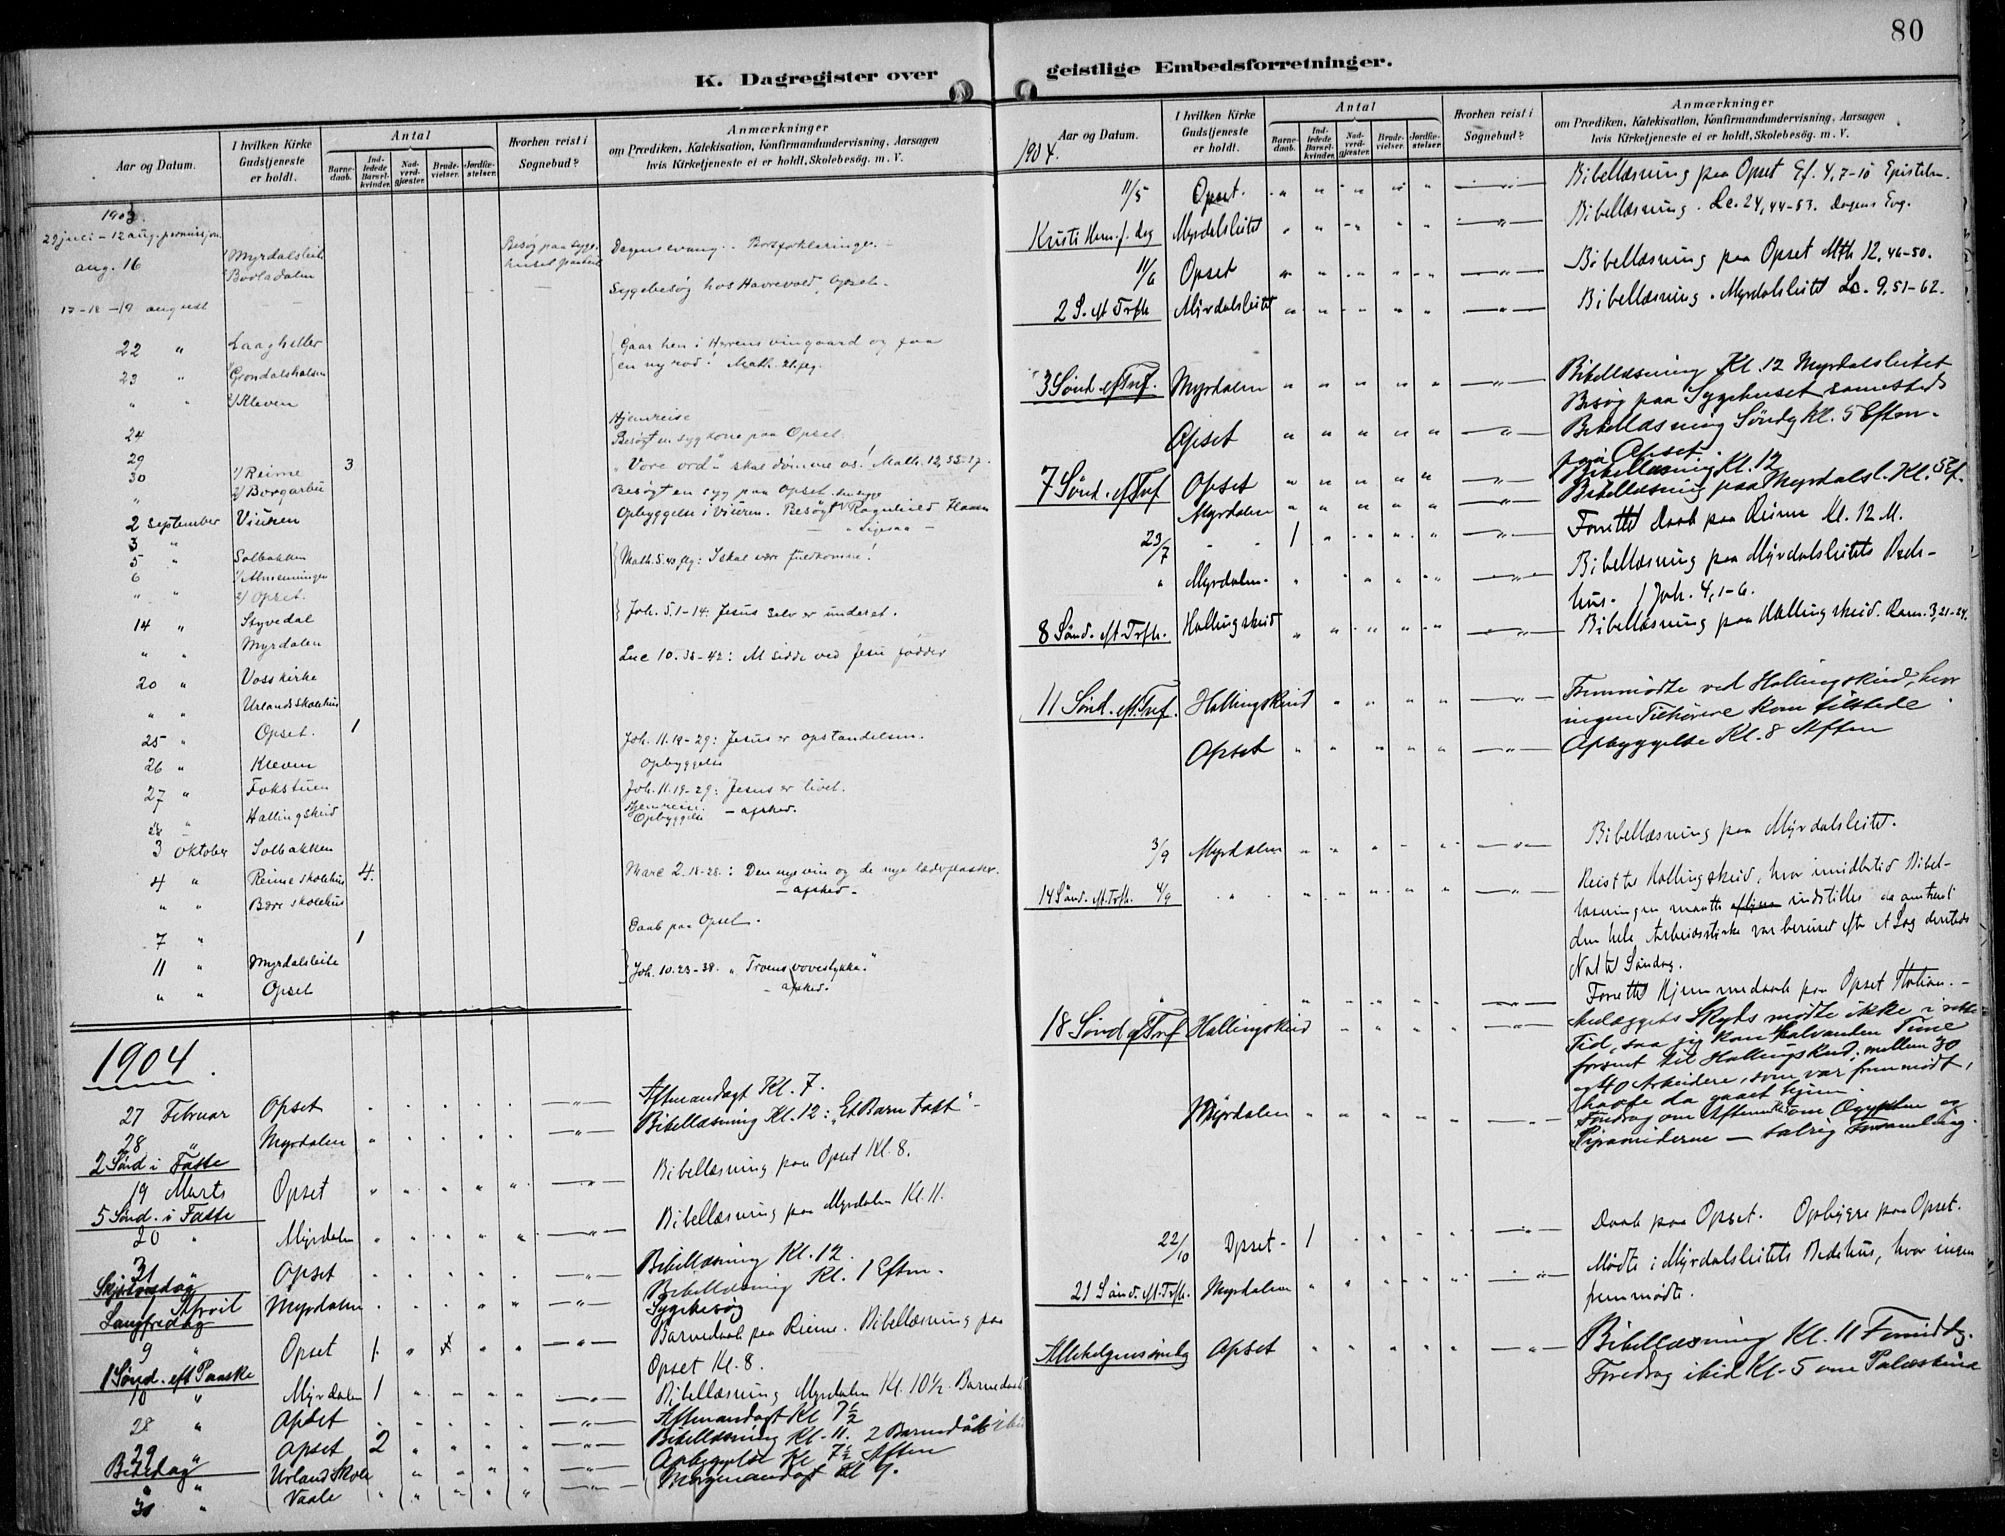 80
K. Dagregister over
geistlige Embedsforretninger.
Aar og Datum.
I hvilken Kirke Gudstjeneste er holdt.
Antal
Barnedaab.
Indledede Barselkvinder.
Nadverdgjæster.
Brudevielser.
Jordfæstelser.
Hvorhen reist i Sognebud?
Anmærkninger
om Prædiken, Katekisation, Konfirmandundervisning, Aarsagen
hvis Kirketjeneste ei er holdt, Skolebesøg. m. V.
1903.
29 juli - 12 aug. permission.
aug. 16 1/ Myrdalsleite Besøg paa syge-
Dagens evang. -
Sygebesøg hos Havrevold, Opset.
17 - 18 - 19 august
22 " Laagheller Gaar hen i Herrens vingaard og faa
23 " Grondalshalsen en ny rod! Math. 21 flg.
" " 2/ Kleven
24 Hjemreise
29 Besøgt en syg kone paa Opset.
30 1/ Reime 3 "Vore ord" skal dømme os! Math. 12, 33-37.
" 2/ Borgarbu Besøgt en syg paa Opset.
2 september Viuken Opbyggelse i Viuren. Besøgt Ragnhild
3 "
5 " Solbakken Math. 5. 43 flg: I skal være fuldkomne!
6 1/ Almenningen
" " 2/ Opset.
14 " Styvedal Joh. 5. 1-14: Jesus selv er underet.
" " Myrdalen
20 " Voss kirke Luc 10. 38-42: At sidde ved Jesu fødder
" " Urlands skolehus
25 " Opset. 1
26 " Kleven Joh. 11. 19-29: Jesus er opstandelsen.
Opbyggelse
27 " Fokstuen Joh. 11. 19-29: Jesus er livet.
" Hallingskeid Hjemreise. - afsked.
Opbyggelse
3 oktober Solbakken
4 " Reime skolehus 4. Marc 2. 18-28: Den nye vin og de nye læderflasker.
" " Bære skolehus - afsked -
7 " 1 Daab paa Opset.
11 " Myrdalsleite Joh. 10. 23-38. "Troens vovestykke."
" " Opset - afsked.
1904.
27 Februar Opset Aftenandagt Kl. 7.
28 " Myrdalen Bibellæsning Kl. 12: "Et Barn født" -
2 Sønd i Faste
19 Marts Opset Bibellæsning paa Opset Kl. 8.
5 Sønd. i Faste
20 " Myrdalen Bibellæsning paa Myrdalen Kl. 11.
31 " Opset Bibellæsning Kl. 12.
Skjærtorsdag
1 April Myrdalen Bibellæsning Kl. 1 Eftm.
Langfredag Sygebesøg
9 " Opset 1. Barnedaab paa Reime. Bibellæsning paa
1 Sønd. eft Paaske Opset Kl. 8.
10 " Myrdalen 1 Bibellæsning, Myrdalen Kl. 10½. Barnedaab
28 " Opset Aftenandagt Kl 7½
29 " Opset 2 Bibellæsning Kl. 11. 2 Barnedåb
Bededag Urland Skole Opbyggelse Kl 7½ Aften
30 " Vaale Morgenandagt Kl 9.
1904.
11/5 Opset. Bibellæsning paa Opset Ef. 4, 7-10 Epistelen.
Kristi Him. f. dag Myrdalsleitet Bibellæsning. Lc. 24, 44-53. dagens Evg.
11/6 Opset Bibellæsning paa Opset Mth 12, 46-50.
2 S. eft Trft. Myrdalsleitet Bibellæsning. Myrdalsleitet Lc. 9, 51-62.
3 Sønd. eft Tref. Myrdalen Bibellæsning Kl. 12 Myrdalsleitet
Besøg paa Sygehuset sammesteds
Opset Bibellæsning Søndg kl. 5 Eftm.
paa Opset.
7 Sønd. eft Tref Opset Bibellæsning Kl. 12
Myrdalen Bibellæsning paa Myrdalsl. Kl. 5 Ef.
23/7 1 Forrettet Daab paa Reime Kl. 12 M.
" Myrdalen. Bibellæsning paa Myrdalsleitets Bede-
hus. 1 Joh. 4, 1-6.
8 Sønd. eft. Trft. Hallingskeid Bibellæsning paa Hallingskeid. Rom. 3, 21-24.
11 Sønd. eft. Tref. Hallingskeid Fremmødte ved Hallingskeid, hvor
ingen Tilhørere kom tilstede.
Opset Opbyggelse Kl. 8 Aften
3/9 Myrdalen Bibellæsning paa Myrdalsleitet.
14 Sønd. eft. Trft. 4/9 " Reist til Hallingskeid, hvor imidlertid Bibel-
læsningen maatte indstilles da omtrent
den hele Arbeidsstoke var beruset efter et Lag dersteds
Nat til Søndag.
" Forrettet Hjemmedaab paa Opset Station. -
18 Sønd eft Tref Hallingskeid Anlæggets Skyds mødte ikke i rette
Tid, saa jeg kom halvanden Time
forsent til Hallingskeid; mellem 30
og 40 Arbeidere, som var fremmødt,
havde da gaaet hjem
Myrdalen Foredrag om Aftenen om Ægypten og
Pyramiderne - talrig Forsamling.
22/10 Opset - 1 Daab paa Opset. Opbygge paa Opset.
21 Sønd. eft. Trft. Myrdalen Mødte i Myrdalsleitets Bedehus, hvor ingen
fremmødte.
Allehelgensøndg Opset Bibellæsning Kl. 11 Formiddg.
Foredrag ibid Kl. 5 om Palæstina